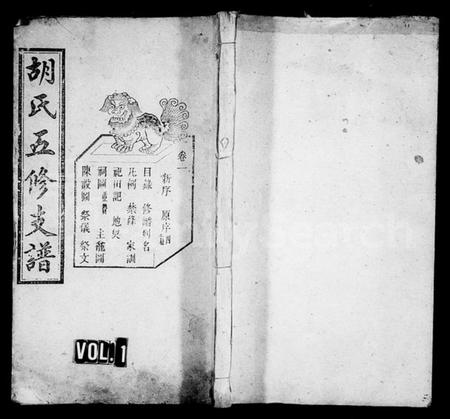 胡氏五修支譜
卷一
新序 原序
目錄 修譜列名
凡例 禁條 家訓
祀田記 地契
祠圖 主龕圖
陳設圖 祭儀 祭文
VOL. 1